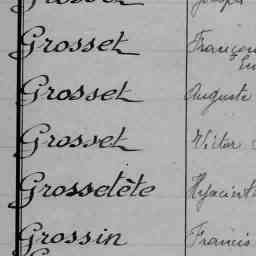 Grosset Joseph
Grosset François
Grosset Auguste
Grosset Victor
Grossetête Hyacinth
Grossin Francis